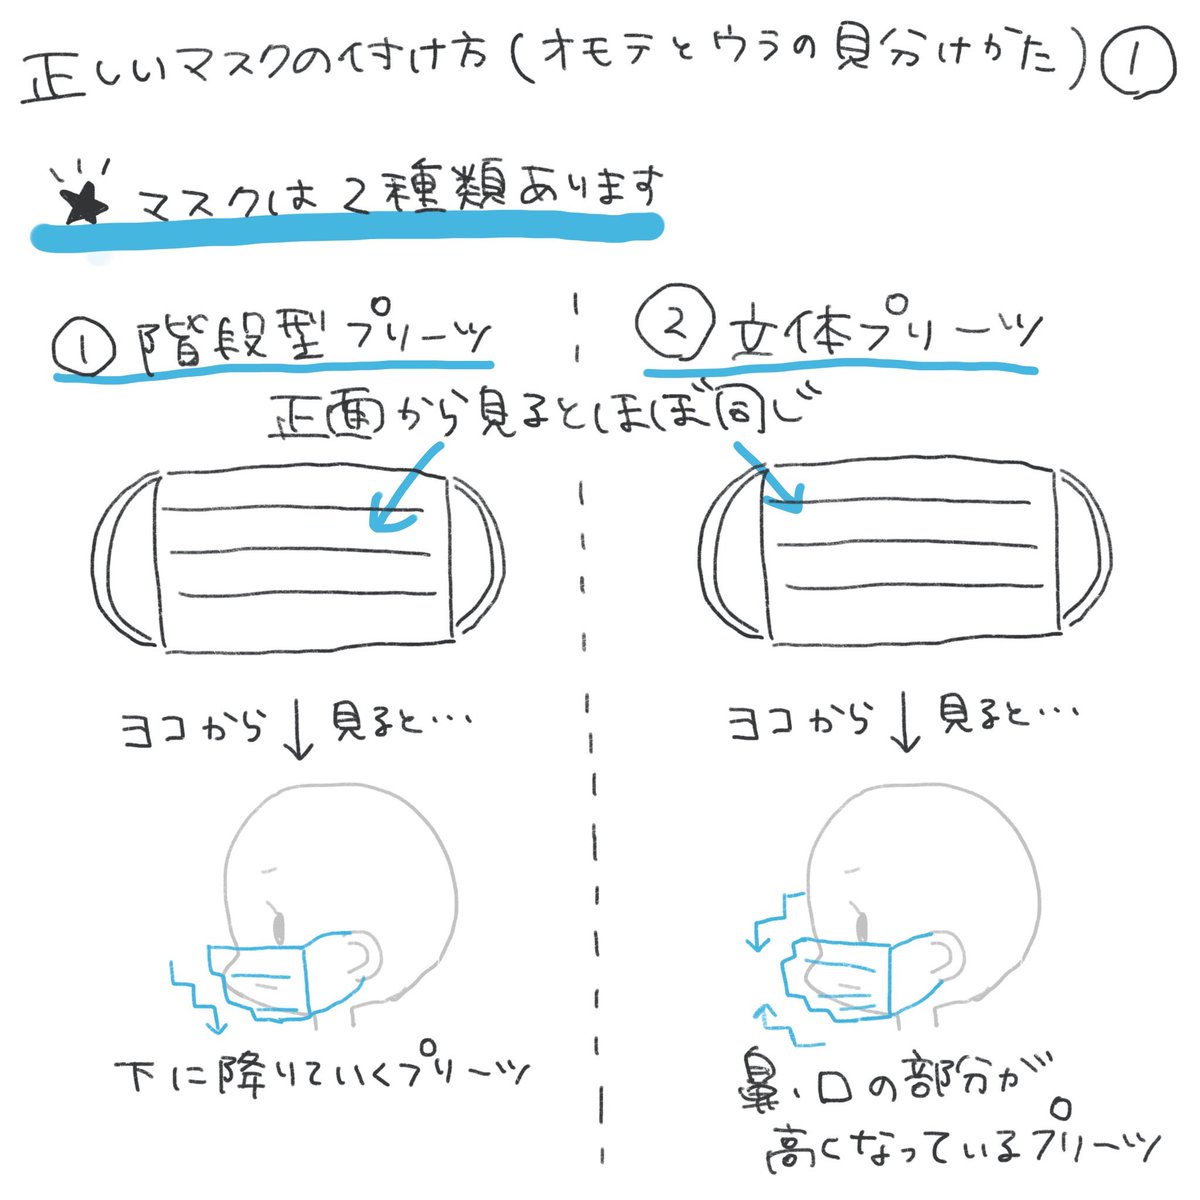 正しいマスクの付け方(オモテとウラの見分けかた)①
★マスクは2種類あります
①階段型プリーツ
②立体プリーツ
正面から見るとほぼ同じ
ヨコから↓見ると…
ヨコから↓見ると…
下に降りていくプリーツ
鼻・口の部分が
高くなっているプリーツ